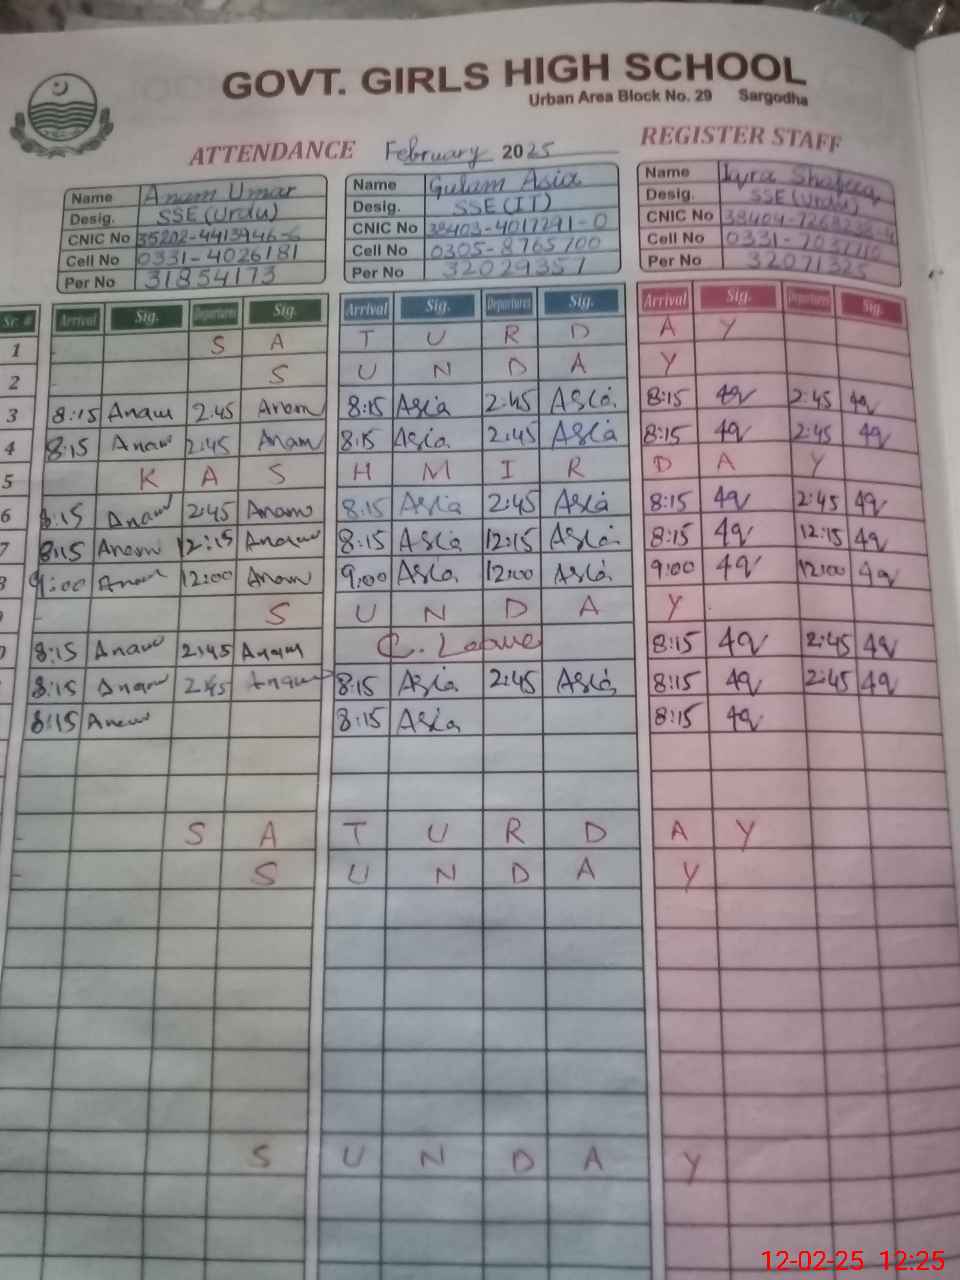 GOVT. GIRLS HIGH SCHOOL
Urban Area Block No. 29 Sargodha
ATTENDANCE February 2025 REGISTER STAFF
Name Anam Umar Name Gulam Asia Name Iqra Shafeeq
Desig. SSE(Urdu) Desig. SSE(IT) Desig. SSE(Urdu)
CNIC No CNIC No CNIC No
Cell No 0331-4026181 Cell No 0305-8765100 Cell No
Per No 31854173 Per No 32029357 Per No 32071325
Sr. # Arrival Sig. Departures Sig. Arrival Sig. Departures Sig. Arrival Sig. Departures Sig.
1 S A T U R D A Y
2 S U N D A Y
3 8:15 Anam 2:45 Anam 8:15 Asia 2:45 Asia 8:15 2:45
4 8:15 Anam 2:45 Anam 8:15 Asia 2:45 Asia 8:15 2:45
5 K A S H M I R D A Y
6 8:15 Anam 2:45 Anam 8:15 Asia 2:45 Asia 8:15 2:45
7 8:15 Anam 12:15 Anam 8:15 Asia 12:15 Asia 8:15 12:15
9:00 Anam 12:00 Anam 9:00 Asia 12:00 Asia 9:00 12:00
S U N D A Y
8:15 Anam 2:45 Anam C. Leave 8:15 2:45
8:15 Anam 2:45 Anam 8:15 Asia 2:45 Asia 8:15 2:45
8:15 Anam 8:15 Asia 8:15
S A T U R D A Y
S U N D A Y
S U N D A Y
12-02-25 12:25